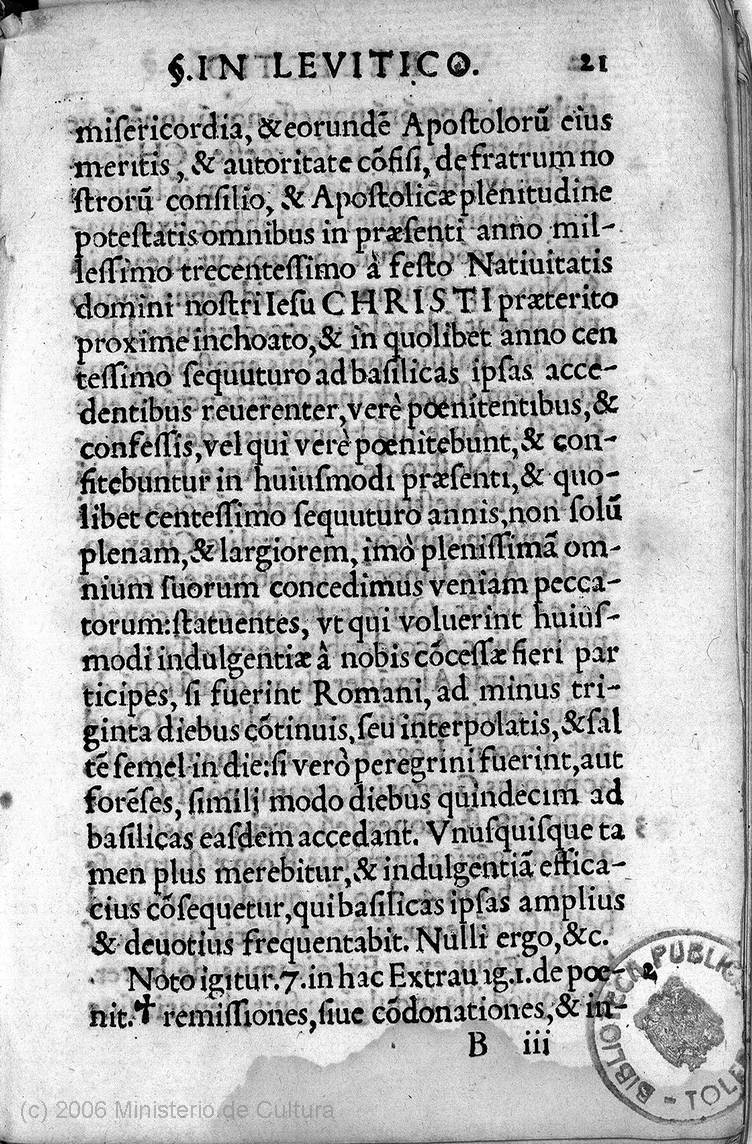 §. IN LEVITICO. 21
misericordia, & eorundẽ Apostolorũ eius
meritis, & autoritate cõfisi, de fratrum no
strorũ consilio, & Apostolicæ plenitudine
potestatis omnibus in præsenti anno mil-
lessimo trecentessimo à festo Natiuitatis
domini nostri Iesu CHRISTI præterito
proxime inchoato, & in quolibet anno cen
tessimo sequuturo ad basilicas ipsas acce-
dentibus reuerenter, verè pœnitentibus, &
confessis, vel qui verè pœnitebunt, & con-
fitebuntur in huiusmodi præsenti, & quo-
libet centessimo sequuturo annis, non solũ
plenam, & largiorem, imò plenissimã om-
nium suorum concedimus veniam pecca-
torum: statuentes, vt qui voluerint huius-
modi indulgentiæ à nobis cõcessæ fieri par
ticipes, si fuerint Romani, ad minus tri-
ginta diebus cõtinuis, seu interpolatis, & sal
tẽ semel in die: si verò peregrini fuerint, aut
forẽses, simili modo diebus quindecim ad
basilicas easdem accedant. Vnusquisque ta
men plus merebitur, & indulgentiã effica-
cius cõsequetur, qui basilicas ipsas amplius
& deuotius frequentabit. Nulli ergo, &c.
Noto igitur. 7. in hac Extrauig. 1. de pœ- 2,
nit. ✝ remissiones, siue cõdonationes, & in-
B iii
BIBLIOTECA PUBLIC
- TOLE
(c) 2006 Ministerio de Cultura